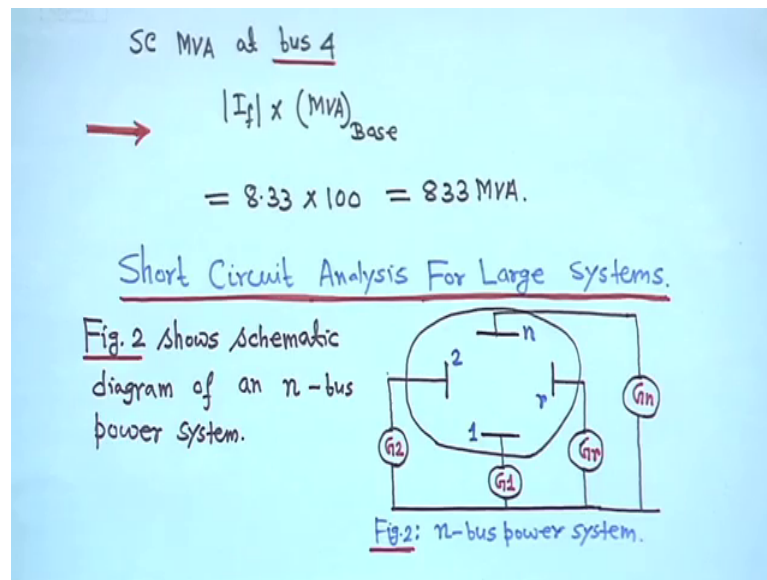 SC MVA at bus 4
|If| x (MVA)Base
= 8.33 x 100 = 833 MVA.
Short Circuit Analysis For Large Systems.
Fig. 2 shows schematic
diagram of an n-bus
power system.
n
2
r
1
Gn
G2
Gr
G1
Fig.2: n-bus power system.